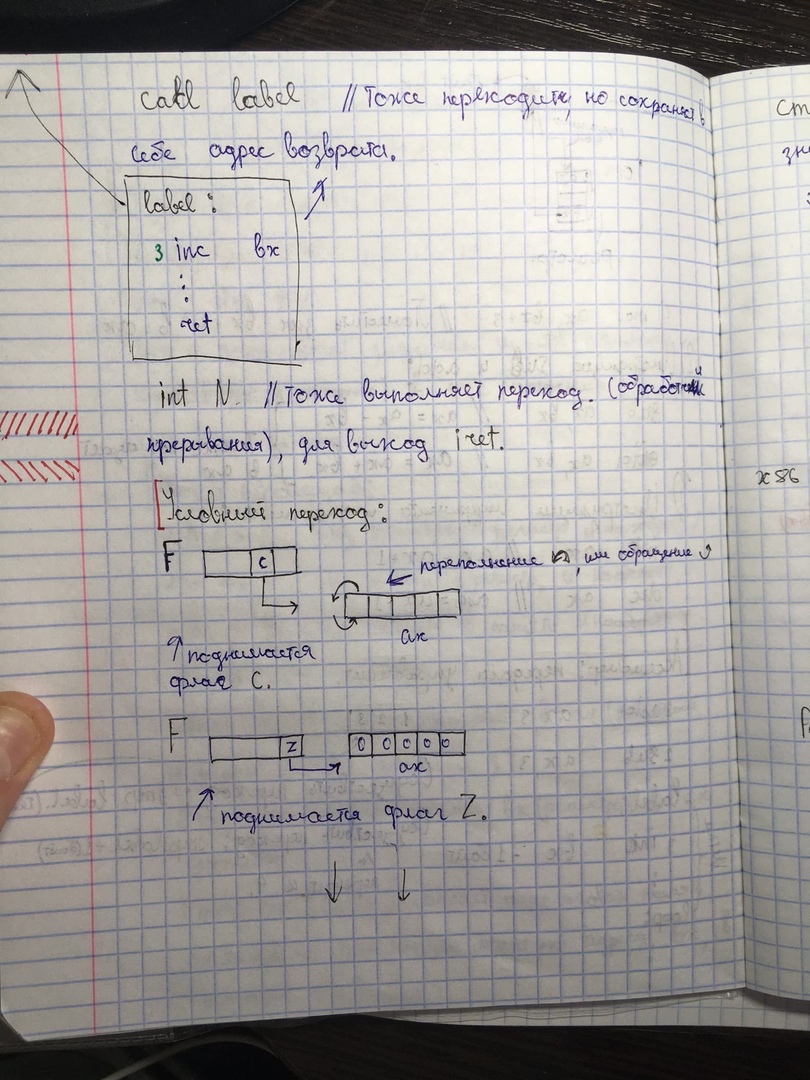 call label // Тоже переходить, но сохраняет в
себе адрес возврата.
label :
3 inc bx
:
ret
int N. // Тоже выполняет переход. (обработчик
прерывания), для выход iret.
Условный переход :
F C
переполнение , или обращение
ax
поднимается
флаг C.
F Z 0 0 0 0 0
ax
поднимается флаг Z.
ст
зн
x86